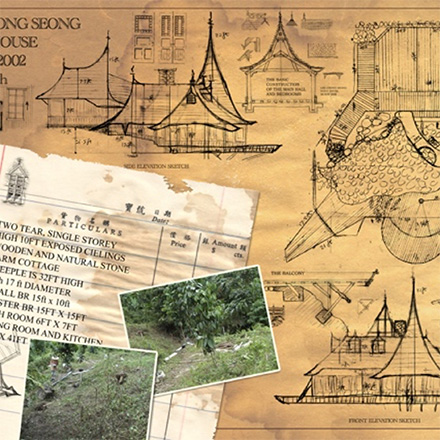 ONG SEONG
OUSE
2002
h
THE BASIC
CONSTRUCTION
OF THE MAIN HALL
AND BEDROOMS
SIDE ELEVATION SKETCH
寶號 日期
Date:
貨物名稱
PARTICULARS
價格
Price
Amount
$ cts.
TWO TEAR, SINGLE STOREY
HIGH 10FT EXPOSED CIELINGS
WOODEN AND NATURAL STONE
ARM COTTAGE
EEPLE IS 32FT HIGH
h 17 ft DIAMETER
ALL BR 15ft x 10ft
STER BR 15FT X 15FT
H ROOM 6FT X 7FT
NG ROOM AND KITCHEN
X 41FT
THE BALCONY
FRONT ELEVATION SKETCH